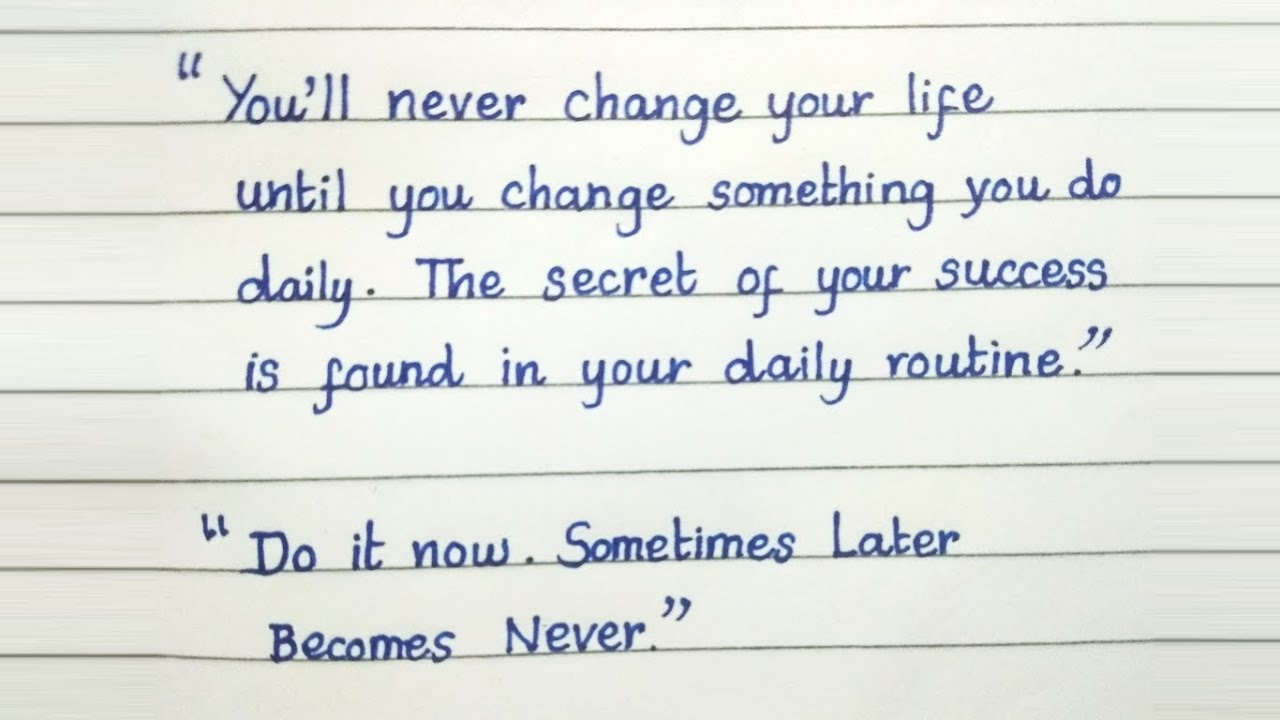 “You’ll never change your life
until you change something you do
daily. The secret of your success
is found in your daily routine.”
“Do it now. Sometimes Later
Becomes Never.”